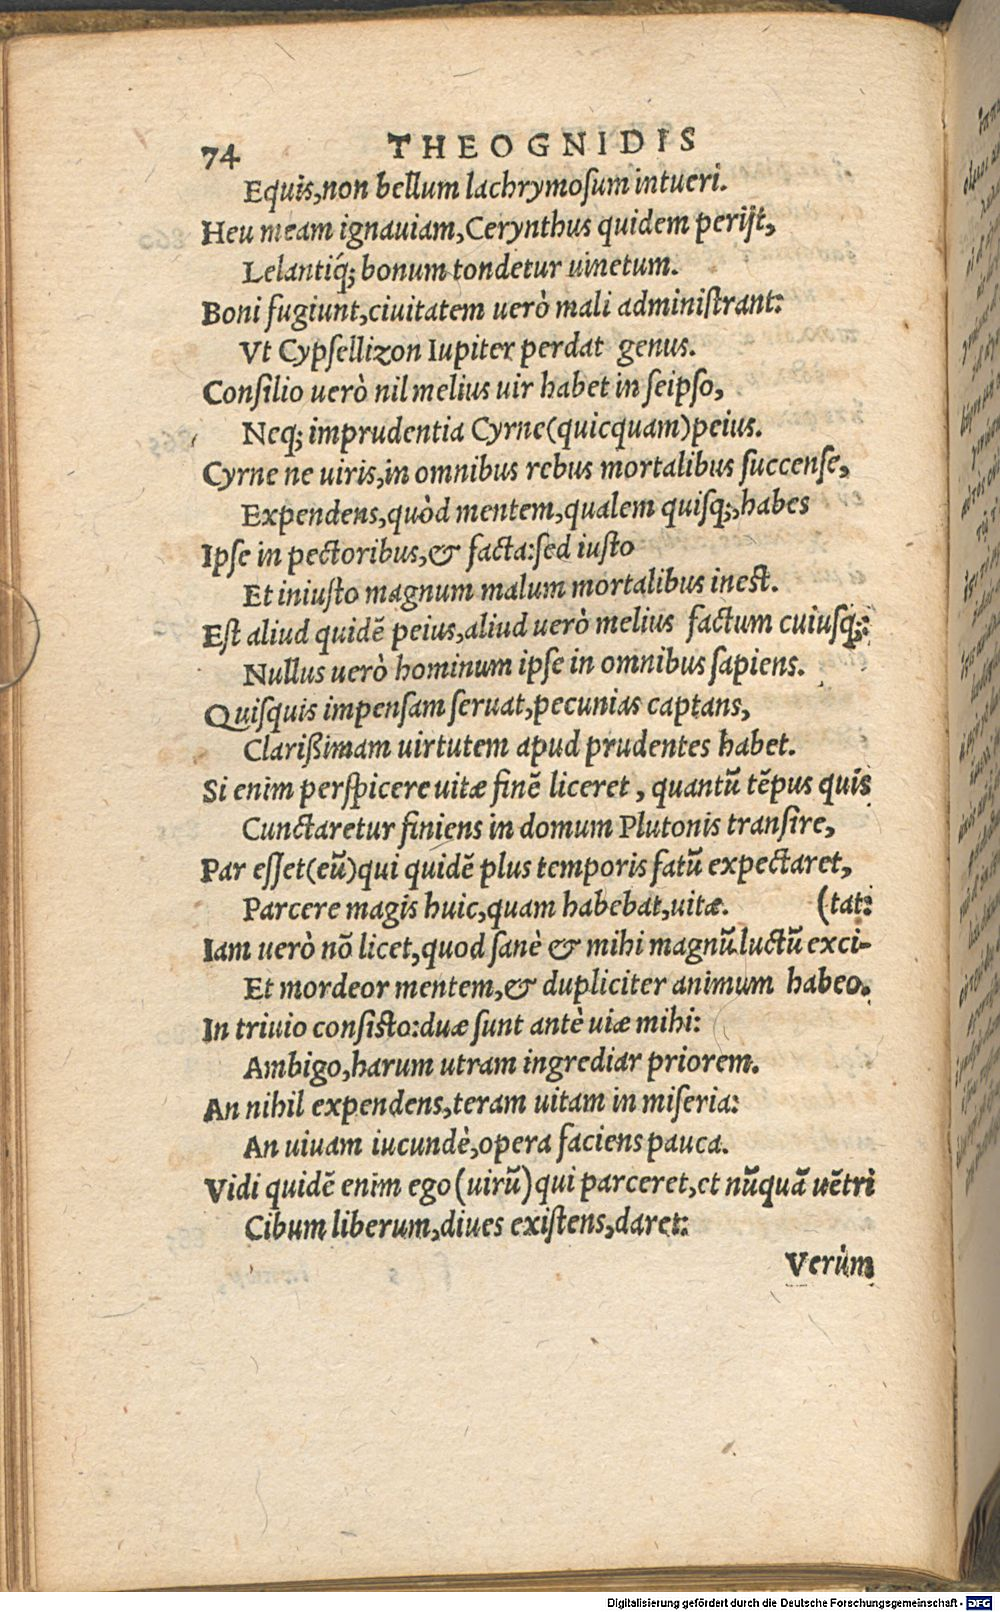 74 THEOGNIDIS
Equis,non bellum lachrymoſum intueri.
Heu meam ignauiam,Cerynthus quidem perijt,
Lelantiq́; bonum tondetur uinetum.
Boni fugiunt,ciuitatem uerò mali adminiſtrant:
Vt Cypſellizon Iupiter perdat genus.
Conſilio uerò nil melius uir habet in ſeipſo,
Neq; imprudentia Cyrne(quicquam)peius.
Cyrne ne uiris,in omnibus rebus mortalibus ſuccenſe,
Expendens,quòd mentem,qualem quiſq;,habes
Ipſe in pectoribus,& facta:ſed iuſto
Et iniuſto magnum malum mortalibus ineſt.
Eſt aliud quidē peius,aliud uerò melius factum cuiuſq;:
Nullus uerò hominum ipſe in omnibus ſapiens.
Quiſquis impenſam ſeruat,pecunias captans,
Clarißimam uirtutem apud prudentes habet.
Si enim perſpicere uitæ finē liceret, quantū tēpus quis
Cunctaretur finiens in domum Plutonis tranſire,
Par eſſet(eū)qui quidē plus temporis fatū expectaret,
Parcere magis huic,quam habebat,uitæ. (tat:
Iam uerò nō licet,quod ſanè & mihi magnū luctū exci-
Et mordeor mentem,& dupliciter animum habeo.
In triuio conſiſto:duæ ſunt antè uiæ mihi:
Ambigo,harum utram ingrediar priorem.
An nihil expendens,teram uitam in miſeria:
An uiuam iucundè,opera faciens pauca.
Vidi quidē enim ego(uirū)qui parceret,et nūquā uētri
Cibum liberum,diues exiſtens,daret:
Verùm
Digitalisierung gefördert durch die Deutsche Forschungsgemeinschaft - DFG